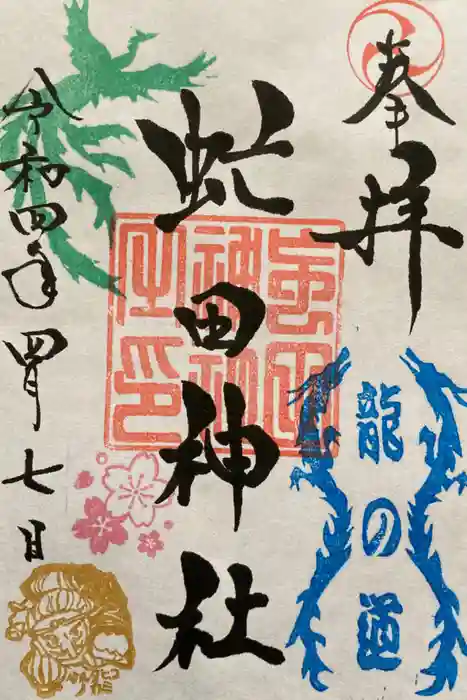 奉拝
龍の道
虻田神社
令和四年四月七日